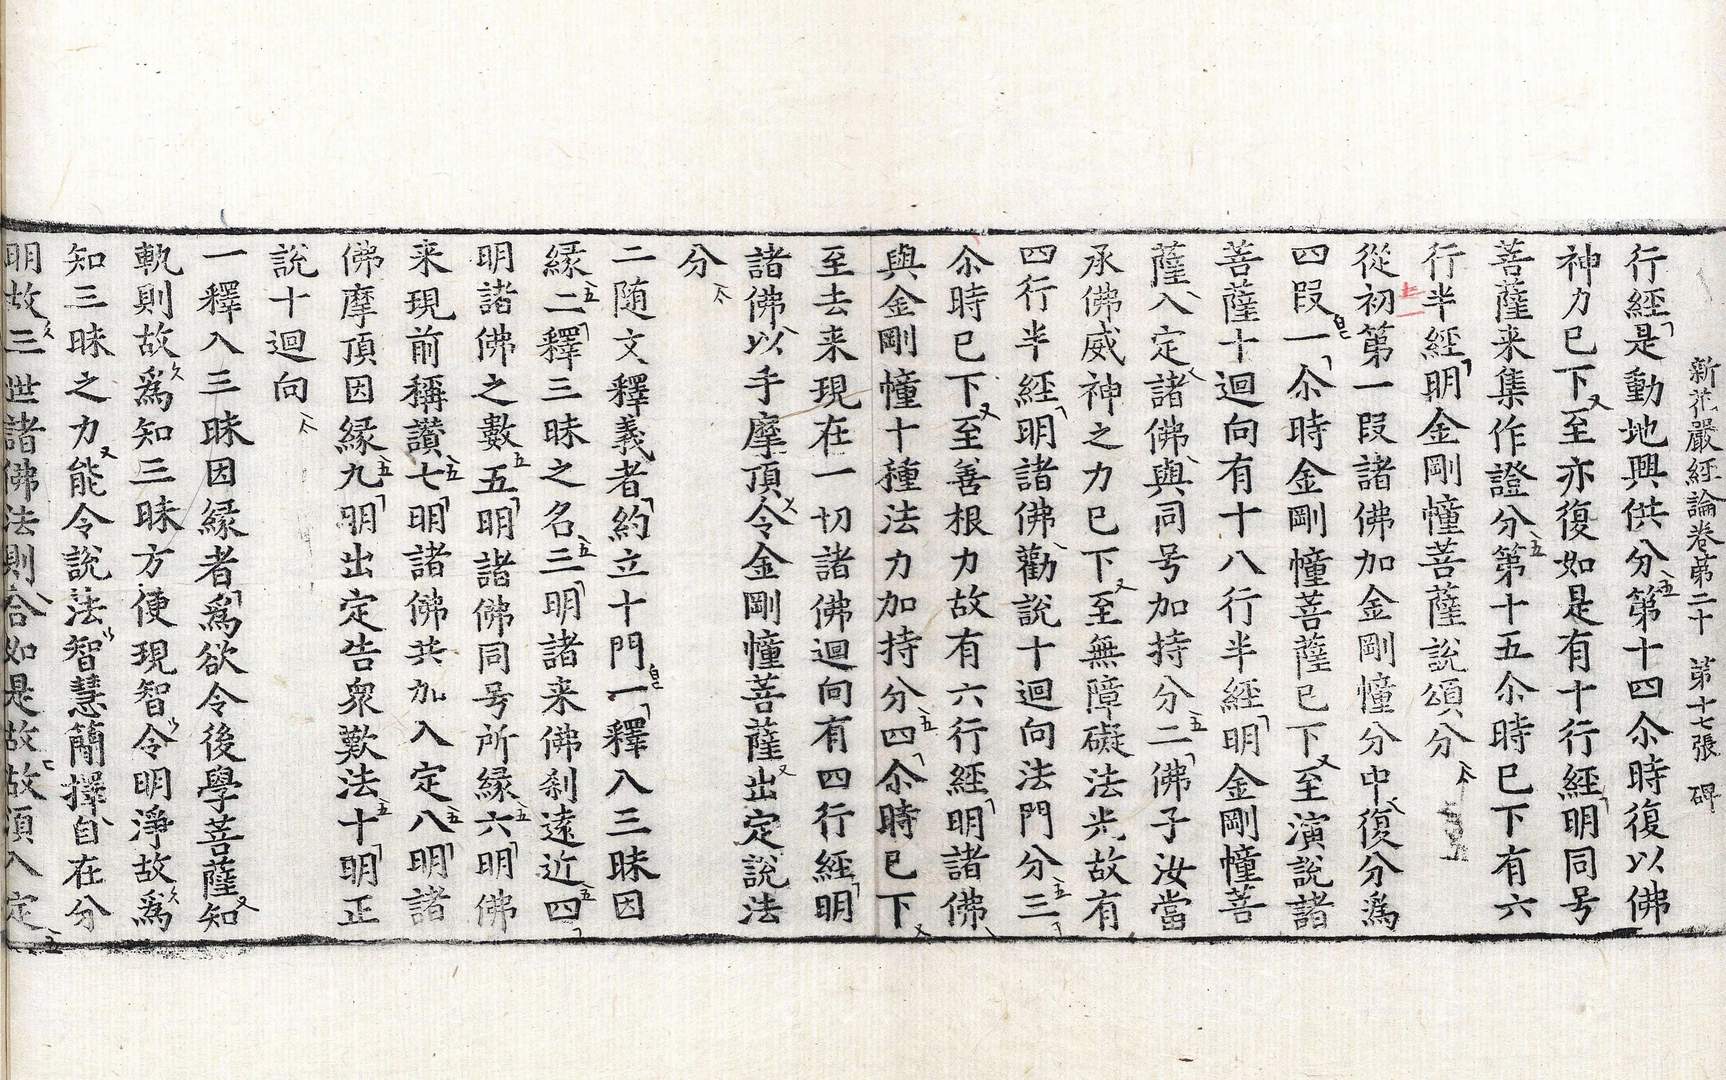 新花嚴經論卷第二十　第十七張　碑
行經是動地興供分第十四尒時復以佛
神力已下至亦復如是有十行經明同号
菩薩来集作證分第十五尒時已下有六
行半經明金剛幢菩薩說頌分
從初第一段諸佛加金剛幢分中復分爲
四段一尒時金剛幢菩薩已下至演說諸
菩薩十迴向有十八行半經明金剛幢菩
薩入定諸佛與同号加持分二佛子汝當
承佛威神之力已下至無障礙法光故有
四行半經明諸佛勸說十迴向法門分三
尒時已下至善根力故有六行經明諸佛
與金剛幢十種法力加持分四尒時已下
至去来現在一切諸佛迴向有四行經明
諸佛以手摩頂令金剛幢菩薩出定說法
分
二随文釋義者約立十門一釋入三昧因
緣二釋三昧之名三明諸来佛刹遠近四
明諸佛之數五明諸佛同号所緣六明佛
来現前稱讃七明諸佛共加入定八明諸
佛摩頂因緣九明出定告衆歎法十明正
說十迴向
一釋入三昧因緣者爲欲令後學菩薩知
軌則故爲知三昧方便現智令明淨故爲
知三昧之力能令說法智慧簡擇自在分
明故三世諸佛法則合如是故故湏入定